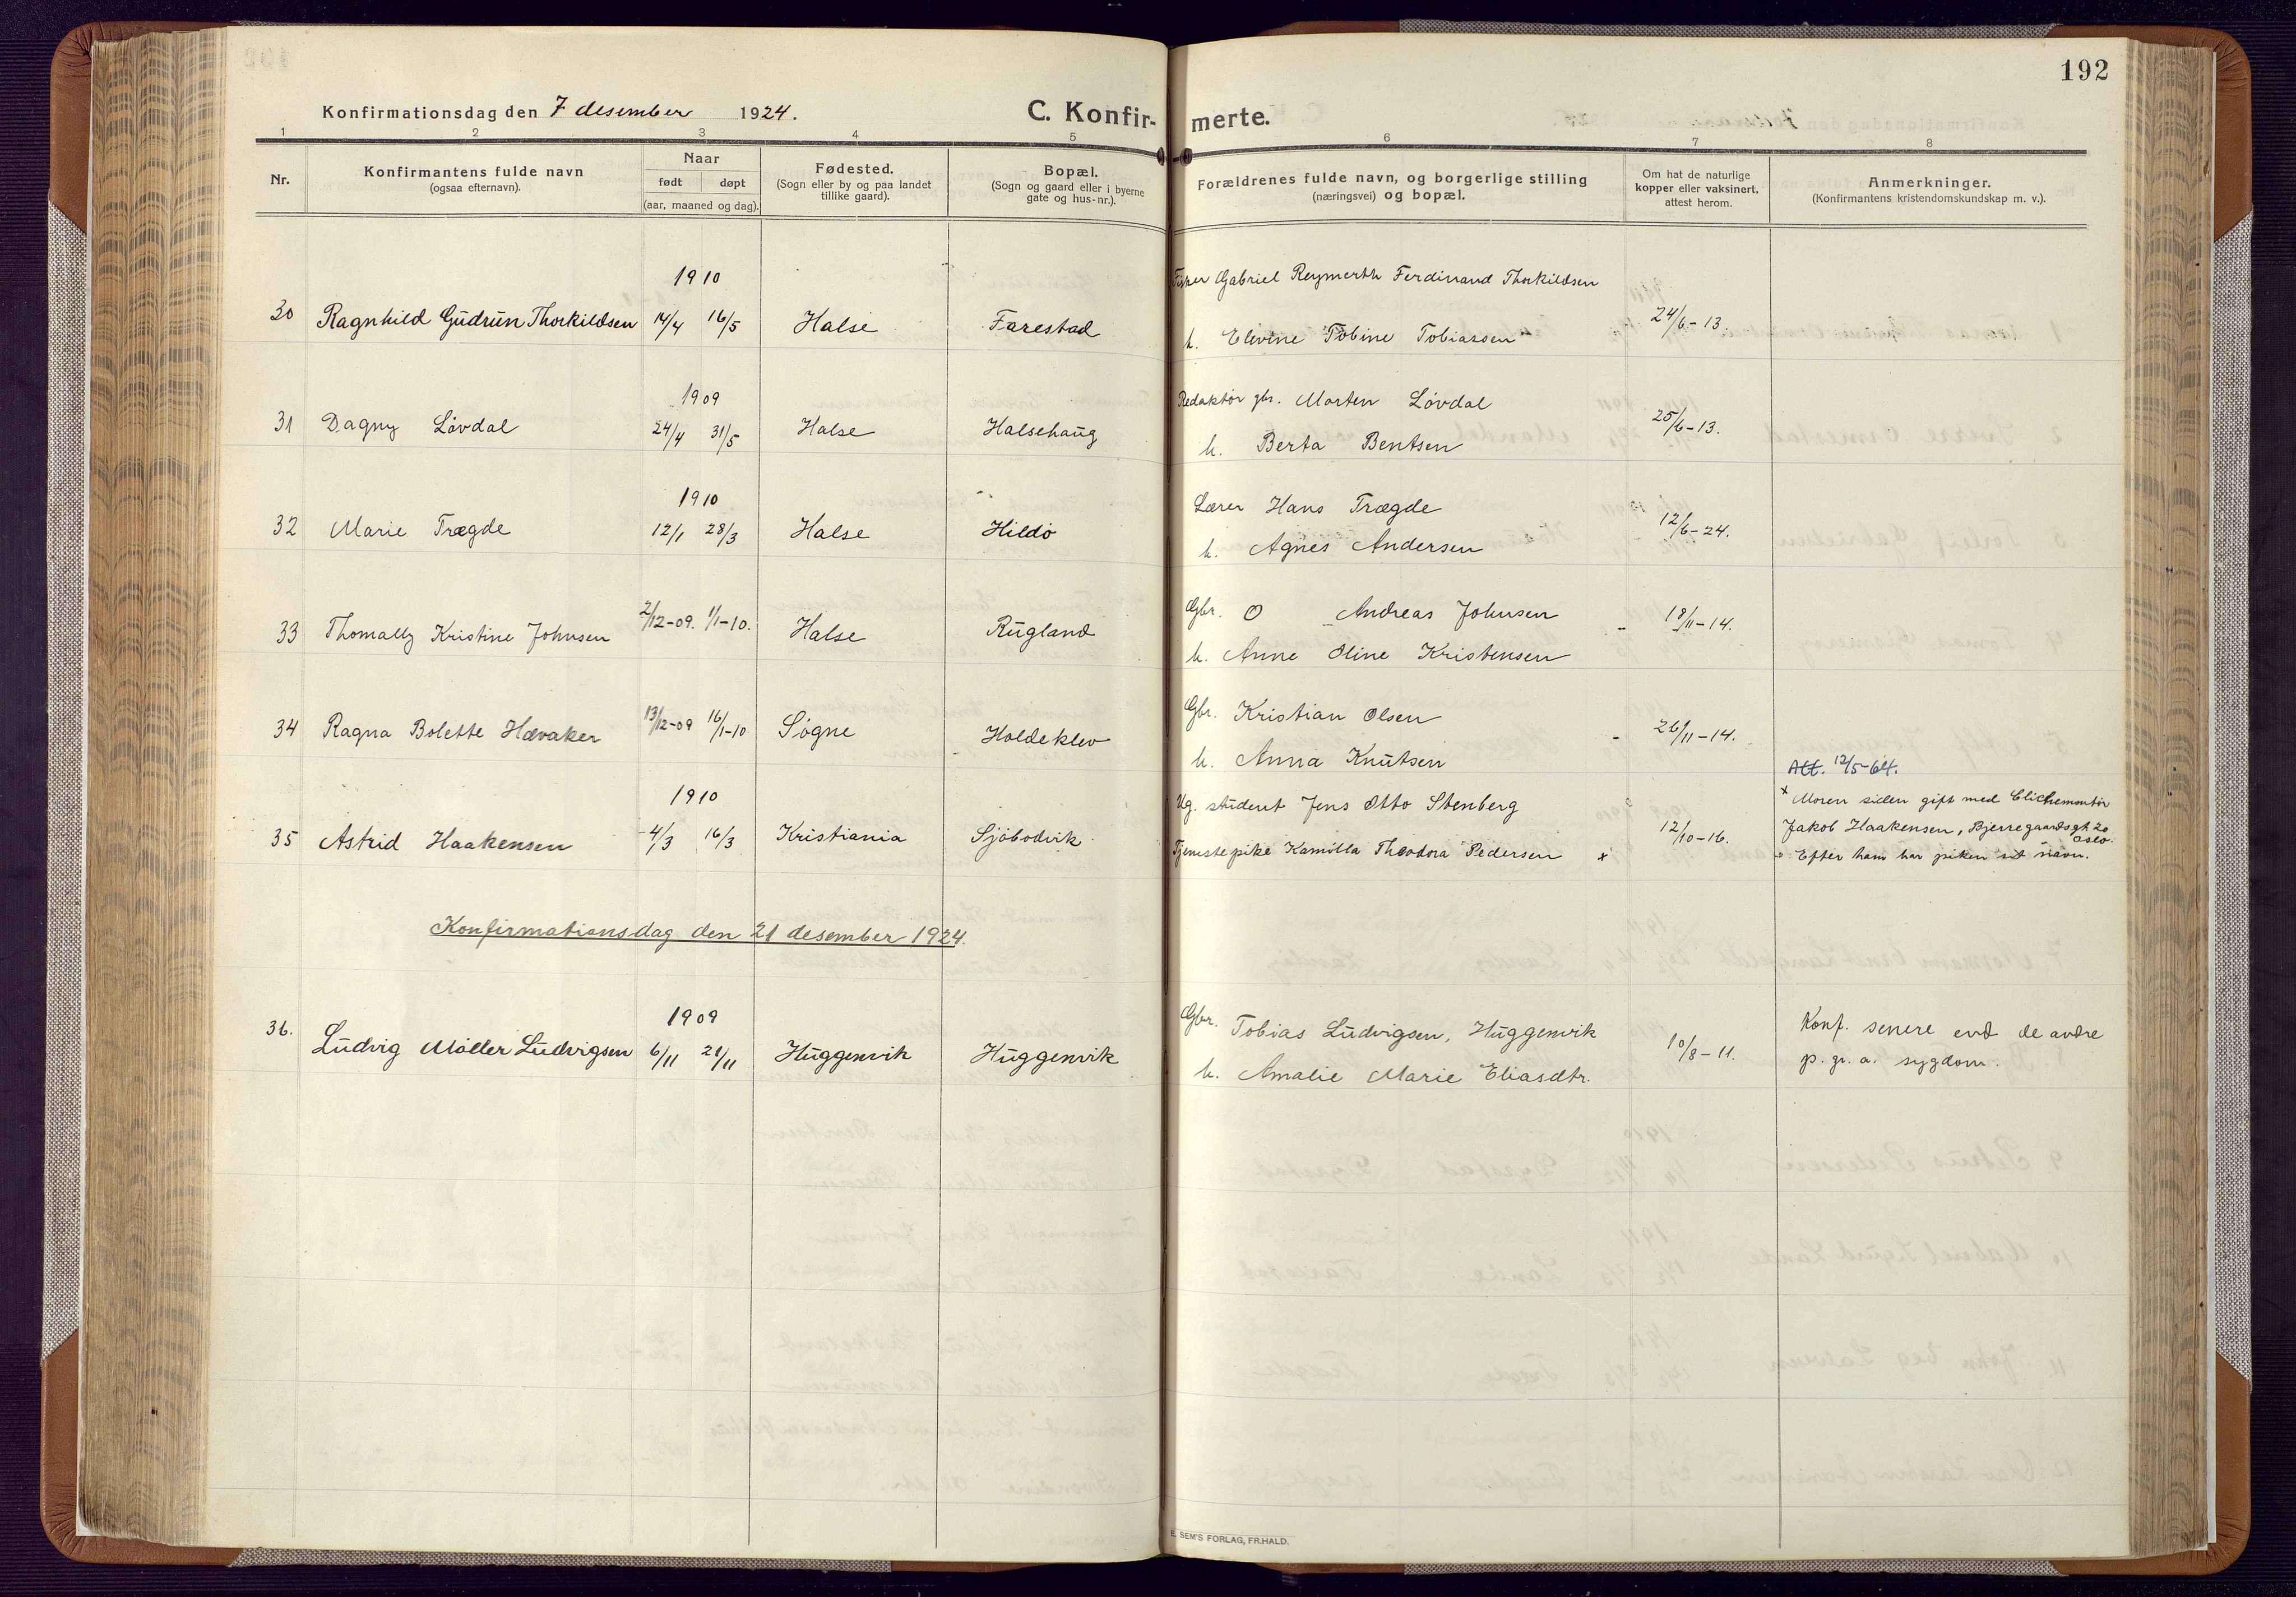 192
Konfirmationsdag den 7 desember 1924.
C. Konfir- merte.
1 2 3 4 5 6 7 8
Nr.
Konfirmantens fulde navn
(ogsaa efternavn).
Naar
født døpt
(aar, maaned og dag).
Fødested.
(Sogn eller by og paa landet
tillike gaard).
Bopæl.
(Sogn og gaard eller i byerne
gate og hus-nr.).
Forældrenes fulde navn, og borgerlige stilling
(næringsvei) og bopæl.
Om hat de naturlige
kopper eller vaksinert,
attest herom.
Anmerkninger.
(Konfirmantens kristendomskundskap m. v.).
1910 Fisker Gabriel Reymerth Ferdinand Thorkildsen
30 Ragnhild Gudrun Thorkildsen 14/4 16/5 Halse Farestad 24/6-13.
h. Elevine Tobine Tobiassen
1909 Redaktør gbr. Morten Løvdal
31 Dagny Løvdal 24/4 31/5 Halse Halsehaug 25/6-13.
h. Berta Bentsen
1910 Lærer Hans Trægde
32 Marie Trægde 12/1 28/3 Halse Hildø 12/6-24.
h. Agnes Andersen
Gbr. O Andreas Johnsen
33 Thomally Kristine Johnsen 2/12-09. 1/1-10. Halse Rugland 18/11-14.
h. Anne Oline Kristensen
Gbr. Kristian Olsen
34 Ragna Bolette Hævaker 13/12-09 16/1-10 Søgne Holdeklev 26/11-14.
h. Anna Knutsen
Att. 12/5-64.
1910 Ug. student Jens Otto Stenberg
x Moren siden gift med Clichemontør
35 Astrid Haakensen 4/3 16/3 Kristiania Sjøbodvik 12/10-16.
Jakob Haakensen, Bjerregaardsgt. 20
Oslo.
Tjenestepike Kamilla Theodora Pedersen x
Efter ham har piken sit navn.
Konfirmationsdag den 21 desember 1924.
1909 Gbr. Tobias Ludvigsen, Huggenvik
36. Ludvig Møller Ludvigsen 6/11 21/11 Huggenvik Huggenvik 10/8-11.
h. Amalie Marie Eliasdtr.
Konf. senere end de andre
p. gr. a. sygdom.
E. SEM'S FORLAG, FR.HALD.